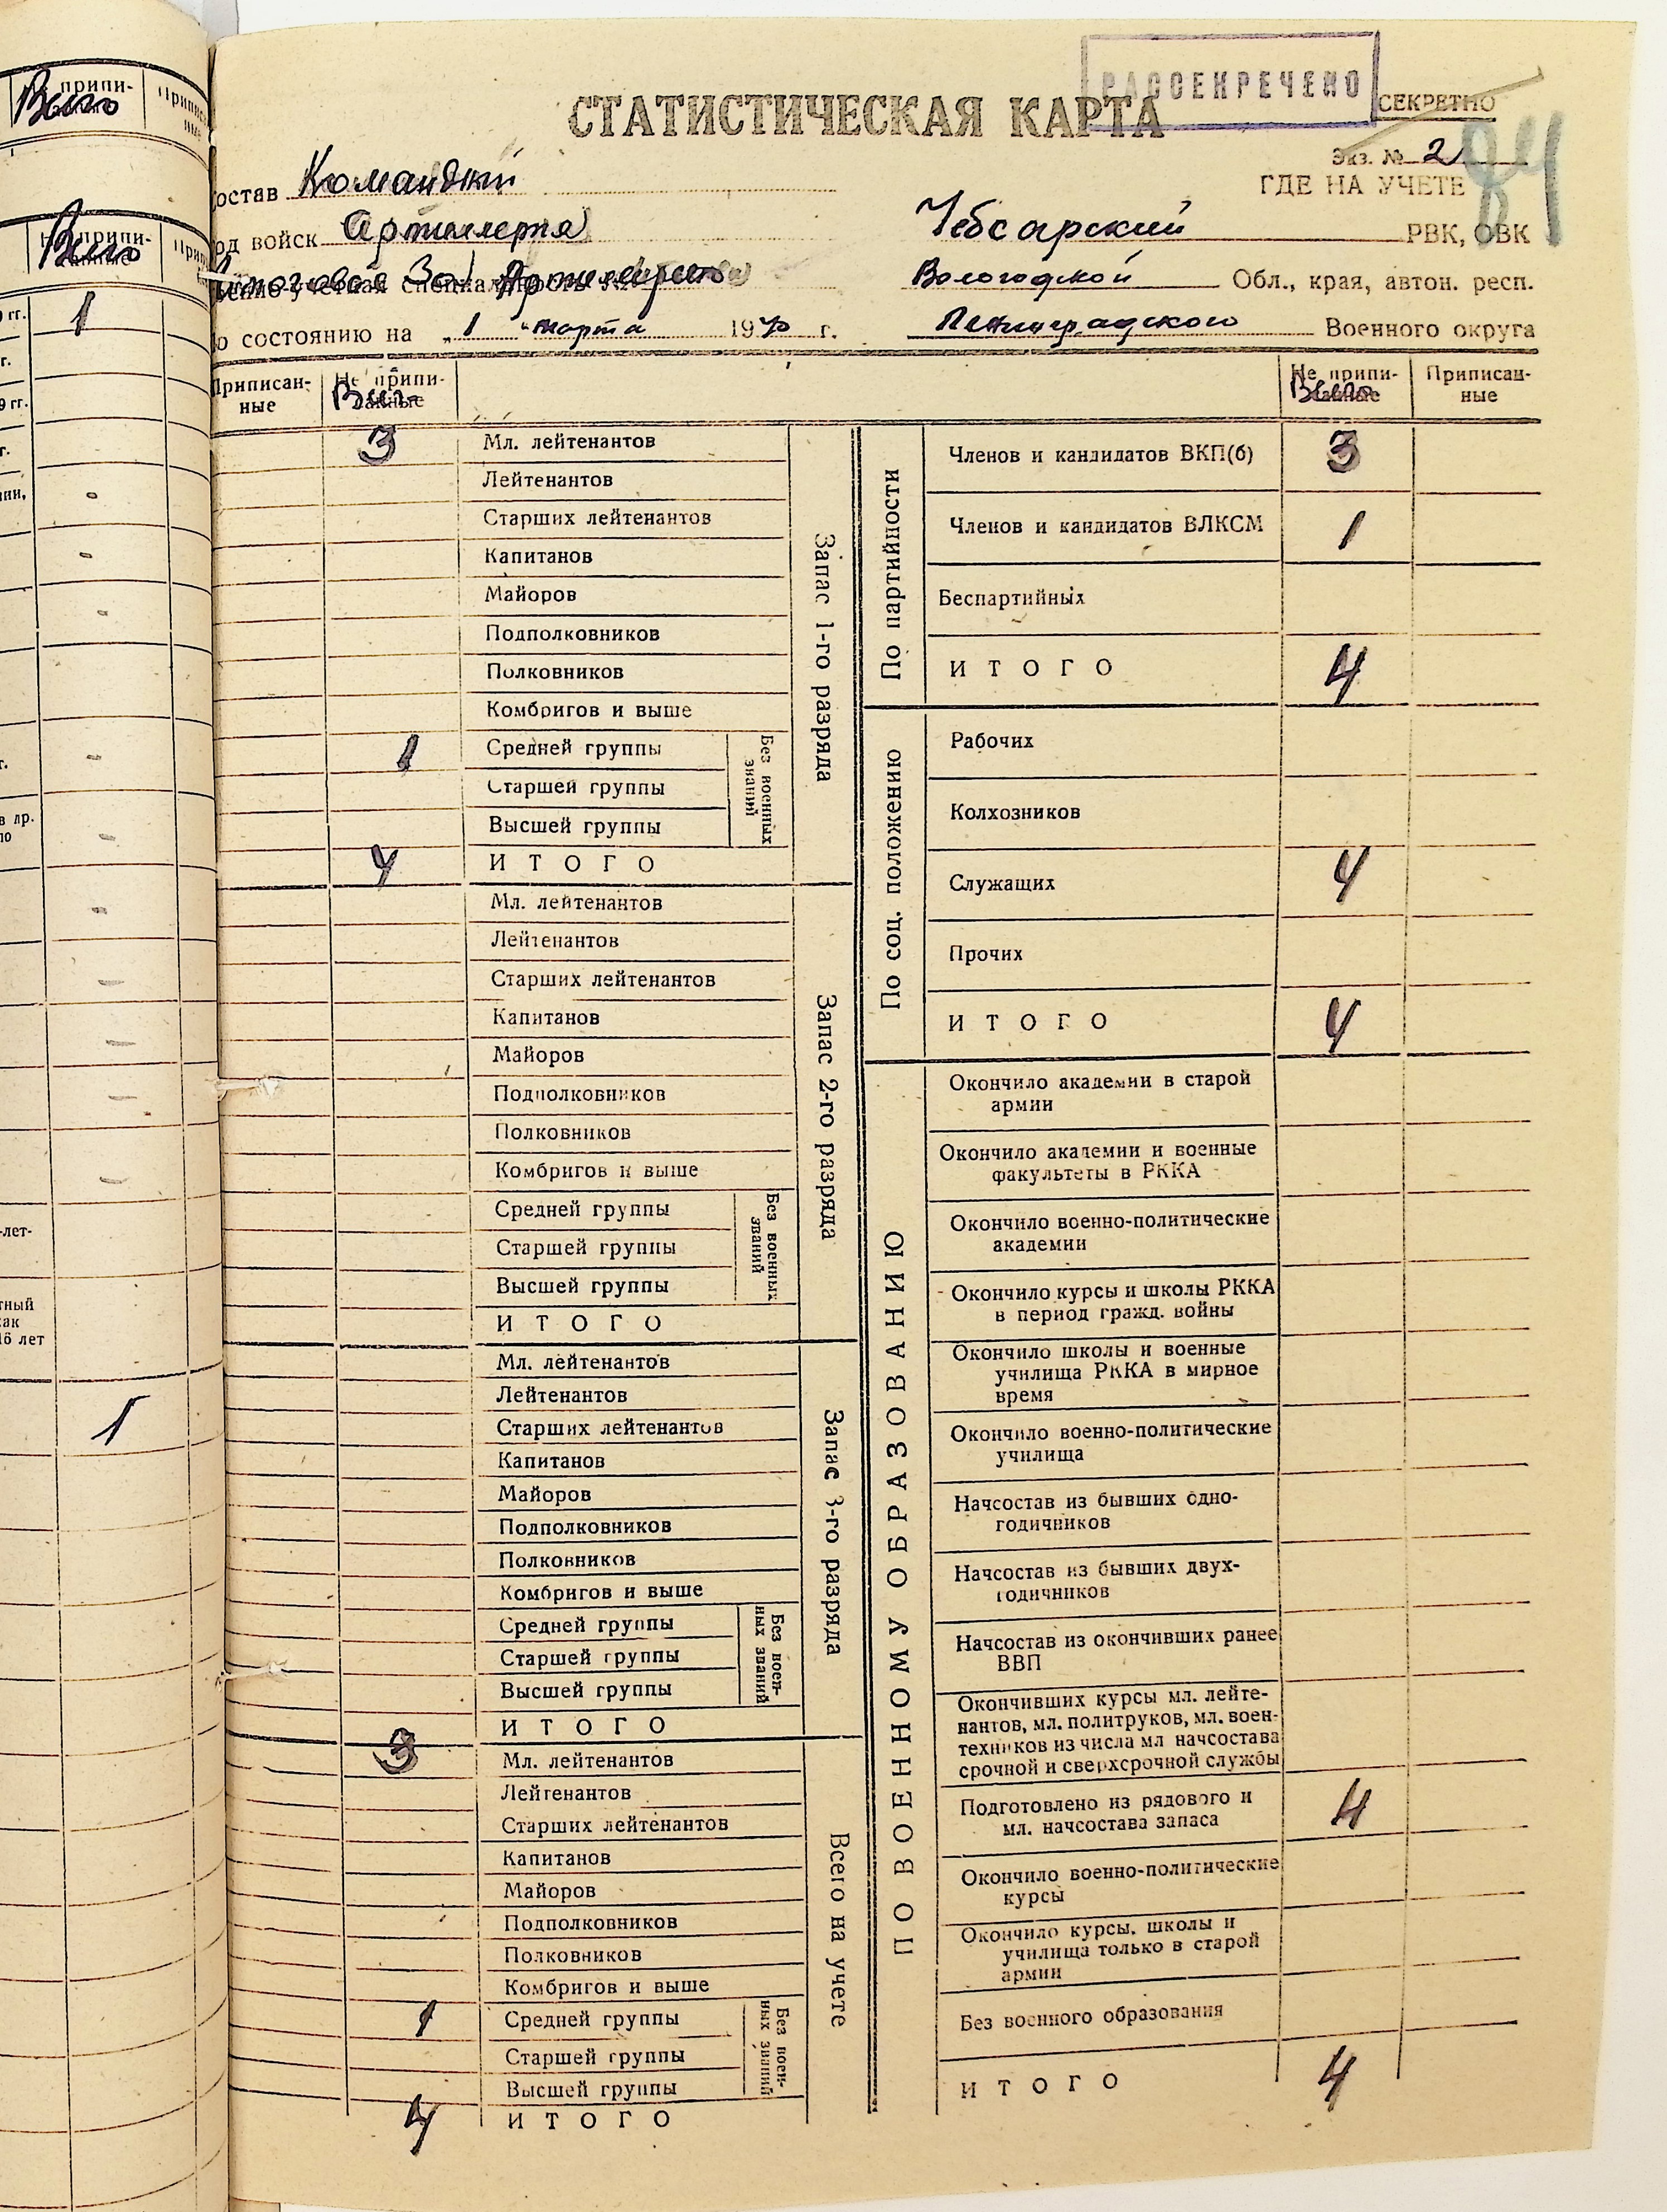 РАССЕКРЕЧЕНО
СТАТИСТИЧЕСКАЯ КАРТА
СЕКРЕТНО
Экз. № 2
84
остав
ГДЕ НА УЧЕТЕ
од войск Артиллерия
Чебсарский РВК, ОВК
Вологодской Обл., края, автон. респ.
о состоянию на „1 " марта 1940 г.
Ленинградского Военного округа
Приписан-
ные
Не припи-
санные
Всего
Не припи-
санные
Всего
Приписан-
ные
Запас 1-го разряда
3 Мл. лейтенантов
Лейтенантов
Старших лейтенантов
Капитанов
Майоров
Подполковников
Полковников
Комбригов и выше
Без военных
званий
1 Средней группы
Старшей группы
Высшей группы
4 ИТОГО
Запас 2-го разряда
Мл. лейтенантов
Лейтенантов
Старших лейтенантов
Капитанов
Майоров
Подполковников
Полковников
Комбригов и выше
Без военных
званий
Средней группы
Старшей группы
Высшей группы
ИТОГО
Запас 3-го разряда
Мл. лейтенантов
Лейтенантов
Старших лейтенантов
Капитанов
Майоров
Подполковников
Полковников
Комбригов и выше
Без воен-
ных званий
Средней группы
Старшей группы
Высшей группы
ИТОГО
Всего на учете
3 Мл. лейтенантов
Лейтенантов
Старших лейтенантов
Капитанов
Майоров
Подполковников
Полковников
Комбригов и выше
Без воен-
ных званий
1 Средней группы
Старшей группы
Высшей группы
4 ИТОГО
По партийности
Членов и кандидатов ВКП(б) 3
Членов и кандидатов ВЛКСМ 1
Беспартийных
ИТОГО 4
По соц. положению
Рабочих
Колхозников
Служащих 4
Прочих
ИТОГО 4
ПО ВОЕННОМУ ОБРАЗОВАНИЮ
Окончило академии в старой
армии
Окончило академии и военные
факультеты в РККА
Окончило военно-политические
академии
Окончило курсы и школы РККА
в период гражд. войны
Окончило школы и военные
училища РККА в мирное
время
Окончило военно-политические
училища
Начсостав из бывших одно-
годичников
Начсостав из бывших двух-
годичников
Начсостав из окончивших ранее
ВВП
Окончивших курсы мл. лейте-
нантов, мл. политруков, мл. воен-
техников из числа мл начсостава
срочной и сверхсрочной службы
Подготовлено из рядового и
мл. начсостава запаса 4
Окончило военно-политические
курсы
Окончило курсы, школы и
училища только в старой
армии
Без военного образования
ИТОГО 4